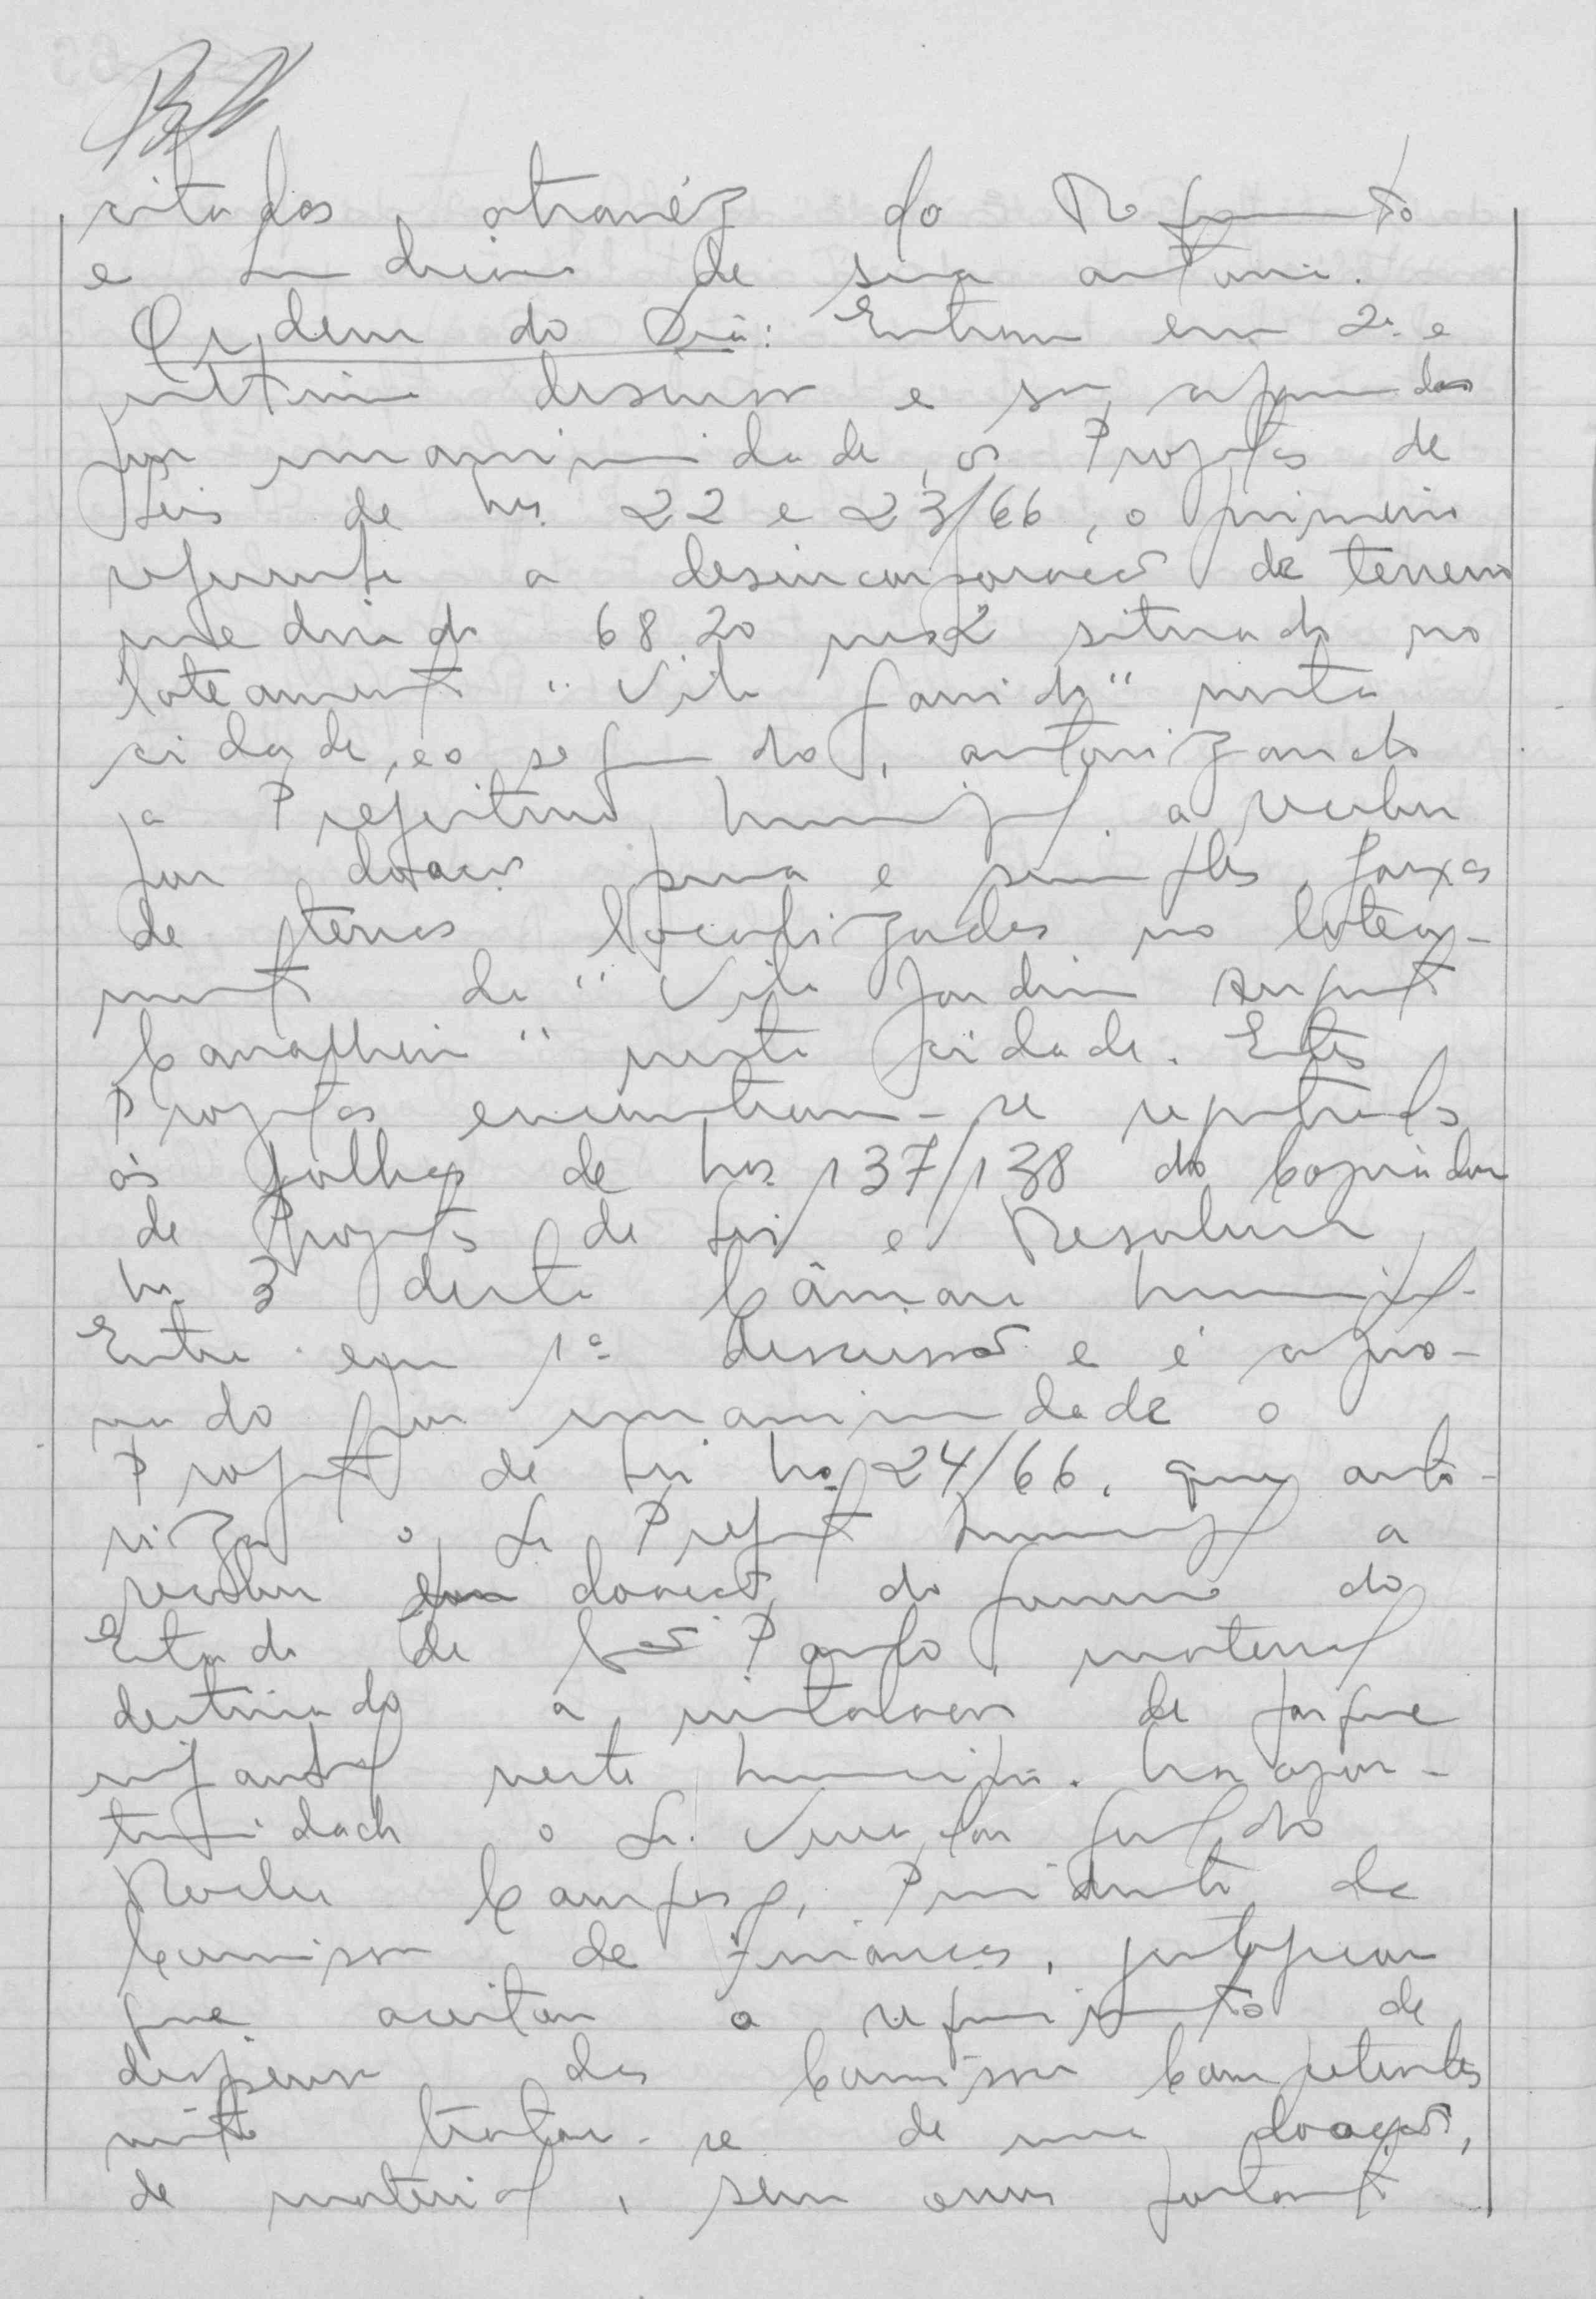 citados, atravéz do Requerimento
e Indicações de sua autoria.
Ordem do Dia: Entram em 2ª e
ultima discussão e são aprovados
por unanimidade, os Projetos de
Leis de nos. 22 e 23/66, o primeiro
referente a desincorporação de terreno
medindo 68 20 ms2 situado no
loteamento "Vila Garrido" nesta
cidade, e o segundo, autorizando
a Prefeitura Municipal a receber
por doação pura e simples, faixas
de terras localizadas no lotea-
mento da "Vila Jardim
" nesta cidade. Estes
Projetos encontram-se registrados
ás folhas de nos. 137/138 do Copiador
de Projetos de Lei e Resolução
no. 3 desta Câmara Municipal.
Entra em 1ª discussão e é apro-
vado por unanimidade o
Projeto de Lei no. 24/66, que auto-
riza o Sr. Prefeito Municipal a
receber doação do Governo do
Estado de São Paulo, material
destinado a instalação de parque
infantil neste Municipio. Na opor-
tunidade o Sr. Vereador Geraldo
Rocha Campos, Presidente da
Comissão de Finanças, justificou
que aceitou o requerimento de
dispensa das Comissões Competentes
visto tratar-se de uma doação,
de material, sem onus portanto